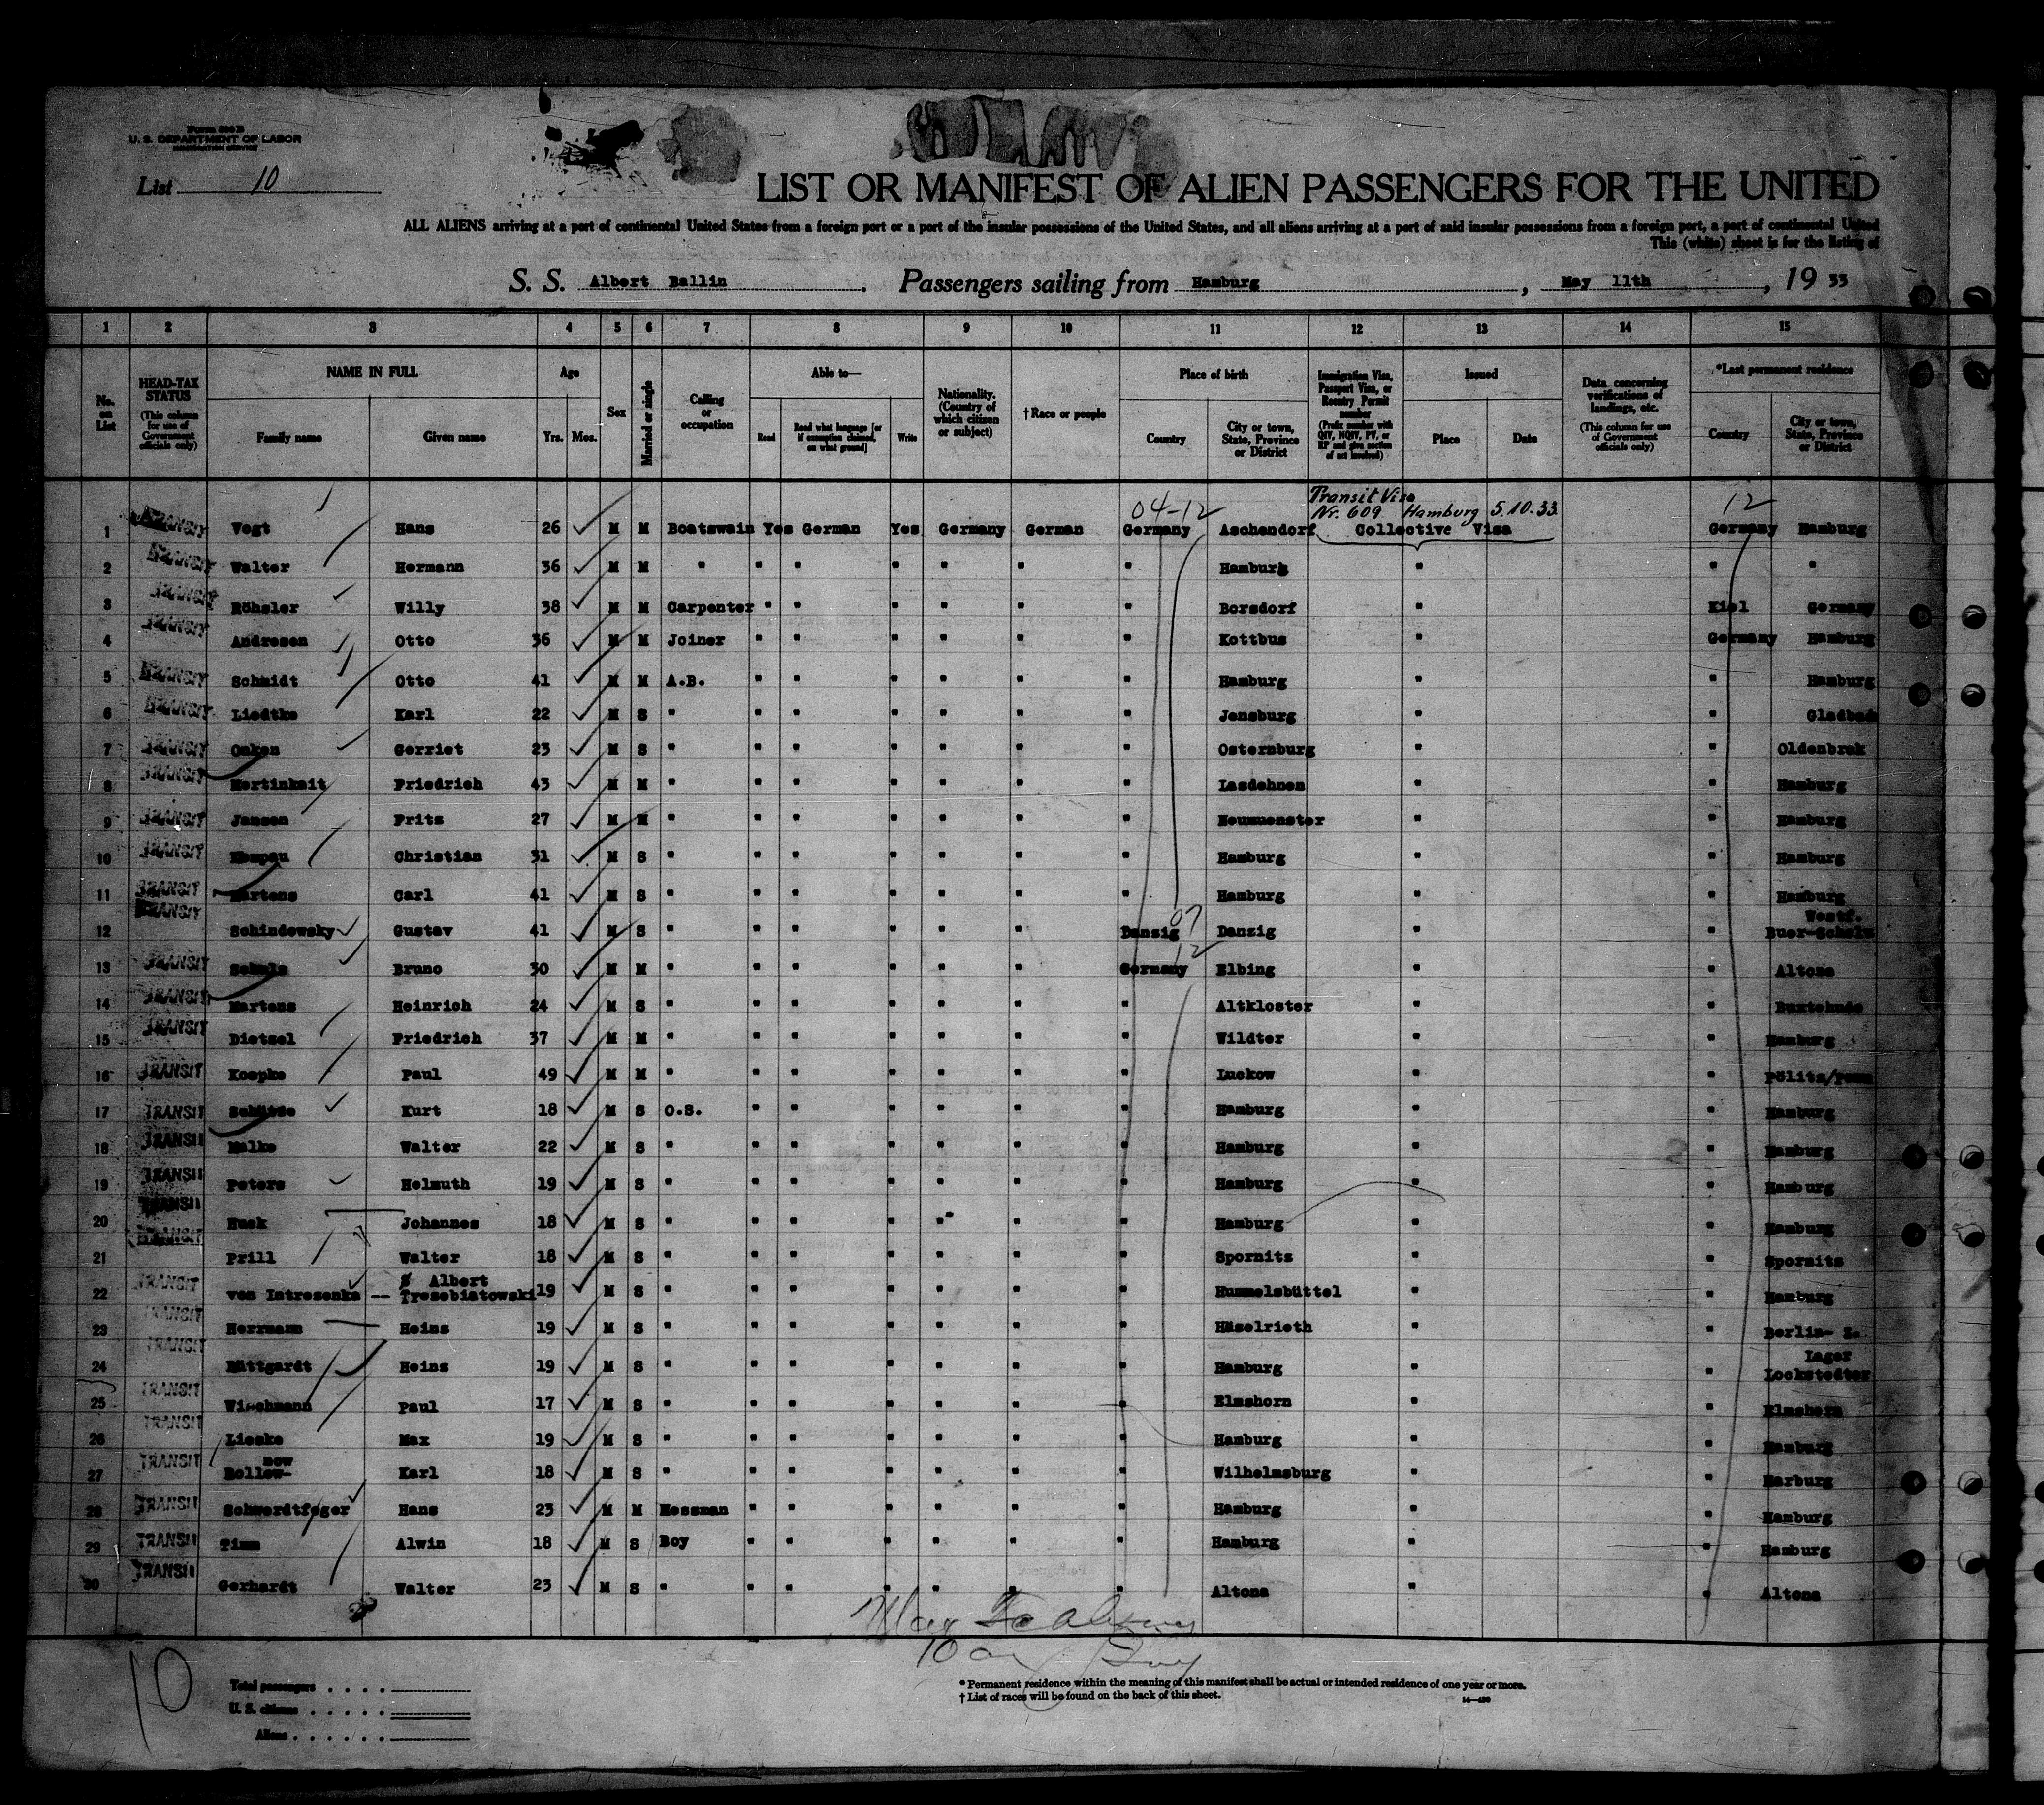 Form 500 B
U. S. DEPARTMENT OF LABOR
IMMIGRATION SERVICE
List 10
LIST OR MANIFEST OF ALIEN PASSENGERS FOR THE UNITED
ALL ALIENS arriving at a port of continental United States from a foreign port or a port of the insular possessions of the United States, and all aliens arriving at a port of said insular possessions from a foreign port, a port of continental United
This (white) sheet is for the listing of
S. S. Albert Ballin. Passengers sailing from Hamburg, May 11th, 19 33
1 2 3 4 5 6 7 8 9 10 11 12 13 14 15
No. on List
HEAD-TAX STATUS (This column for use of Government officials only)
NAME IN FULL Family name Given name
Age Yrs. Mos.
Sex
Married or single
Calling or occupation
Able to— Read Read what language [or if exemption claimed, on what ground] Write
Nationality. (Country of which citizen or subject)
†Race or people
Place of birth Country City or town, State, Province or District
Immigration Visa, Passport Visa, or Reentry Permit number (Prefix number with QIV, NQIV, PV, or RP and give section of act involved)
Issued Place Date
Data concerning verifications of landings, etc. (This column for use of Government officials only)
*Last permanent residence Country City or town, State, Province or District
04-12 Transit Visa 12
Nr. 609 Hamburg 5.10.33
1 TRANSIT Vogt Hans 26 M M Boatswain Yes German Yes Germany German Germany Aschendorf Collective Visa Germany Hamburg
2 TRANSIT Walter Hermann 36 M M " " " " " " " Hamburg " " "
3 TRANSIT Röhsler Willy 38 M M Carpenter " " " " " " Borsdorf " Kiel Germany
4 TRANSIT Andresen Otto 36 M M Joiner " " " " " " Kottbus " Germany Hamburg
5 TRANSIT Schmidt Otto 41 M M A.B. " " " " " " Hamburg " " Hamburg
6 TRANSIT Liedtke Karl 22 M S " " " " " " " Jensburg " " Gladbach
7 TRANSIT Onken Gerriet 23 M S " " " " " " " Osternburg " " Oldenbrok
8 TRANSIT Mertinkait Friedrich 43 M M " " " " " " " Lasdehnen " " Hamburg
9 TRANSIT Jansen Fritz 27 M M " " " " " " " Neumuenster " " Hamburg
10 TRANSIT Kempau Christian 31 M S " " " " " " " Hamburg " " Hamburg
11 TRANSIT Martens Carl 41 M S " " " " " " " Hamburg " " Hamburg
TRANSIT 07 Westf.
12 Schindowsky Gustav 41 M S " " " " " " Danzig Danzig " " Buer-Scholv
12
13 TRANSIT Schulz Bruno 30 M M " " " " " " Germany Elbing " " Altona
14 TRANSIT Martens Heinrich 24 M S " " " " " " " Altkloster " " Buxtehude
15 TRANSIT Dietzel Friedrich 37 M M " " " " " " " Wildter " " Hamburg
16 TRANSIT Koepke Paul 49 M M " " " " " " " Luckow " " Pölitz/Pomm
17 TRANSIT Schütze Kurt 18 M S O.S. " " " " " " Hamburg " " Hamburg
18 TRANSIT Malke Walter 22 M S " " " " " " " Hamburg " " Hamburg
19 TRANSIT Peters Helmuth 19 M S " " " " " " " Hamburg " " Hamburg
20 TRANSIT Husk Johannes 18 M S " " " " " " " Hamburg " " Hamburg
21 TRANSIT Prill Walter 18 M S " " " " " " " Spornitz " " Spornitz
Albert
22 TRANSIT von Intresenka -- Trzebiatowski 19 M S " " " " " " " Hummelsbüttel " " Hamburg
23 TRANSIT Herrmann Heinz 19 M S " " " " " " " Häselrieth " " Berlin- Z.
24 TRANSIT Büttgardt Heinz 19 M S " " " " " " " Hamburg " " Lager Lockstedter
25 TRANSIT Wischmann Paul 17 M S " " " " " " " Elmshorn " " Elmshorn
26 TRANSIT Lieske Max 19 M S " " " " " " " Hamburg " " Hamburg
27 TRANSIT Rollow- now Karl 18 M S " " " " " " " Wilhelmsburg " " Harburg
28 TRANSIT Schwerdtfeger Hans 23 M M Messman " " " " " " Hamburg " " Hamburg
29 TRANSIT Timm Alwin 18 M S Boy " " " " " " Hamburg " " Hamburg
30 TRANSIT Gerhardt Walter 23 M S " " " " " " " Altona " " Altona
10
Total passengers
U. S. citizens
Aliens
* Permanent residence within the meaning of this manifest shall be actual or intended residence of one year or more.
† List of races will be found on the back of this sheet.